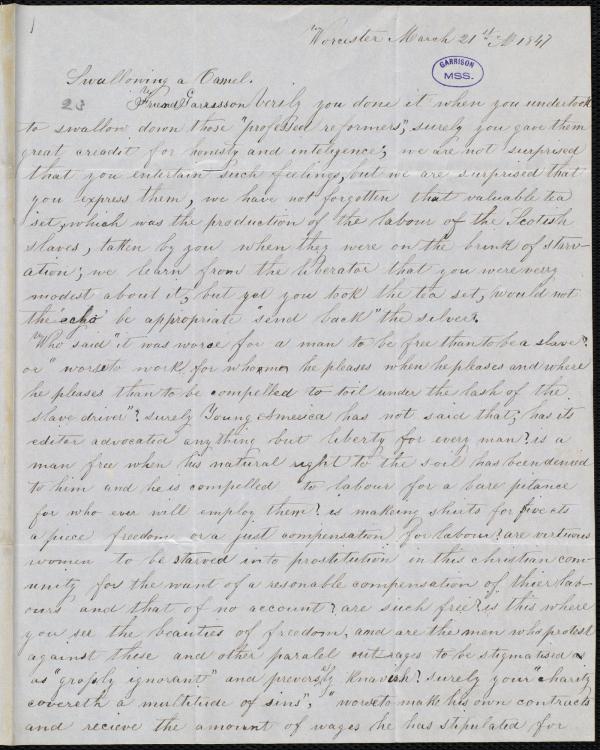 Worcester March 21st AD 1847
GARRISON
MSS.
Swallowing a Camel.
23
Friend Garrisson Verily you done it when you undertook
to swallow down those "professed reformers", surely you gave them
great creadit for honesty and inteligence; we are not surprised
that you entertain such feelings, but we are surprised that
you express them, we have not forgotten that valuable tea
set, which was the production of the labour of the Scotish
slaves, taken by you when they were on the brink of starv-
ation; we learn from the liberator that you were very
modest about it, but yet you took the tea set, would not
the 'echo' be appropriate send back "the silver".
Who said "it was worse for a man to be free than to be a slave"?
or "worse to work for whom he pleases when he pleases and where
he pleases than to be compelled to toil under the lash of the
slave driver"? surely Young America has not said that; has its
editor advocated any thing but liberty for every man? is a
man free when his natural right to the soil has been denied
to him and he is compelled to labour for a bare pitance
for who ever will employ them? is making shirts for five cts
a piece freedom or a just compensation for labour? are virtious
women to be starved into prostitution in this christian com-
unity for the want of a resonable compensation of thier lab-
ours and that of no account? are such free? is this where
you see the beauties of freedom, and are the men who protest
against these and other paralel outrages to be stigmatised as
as "grossly ignorant" and preversly knavish? surely your "charity
covereth a multitude of sins", "worse to make his own contracts
and recieve the amount of wages he has stipulated for